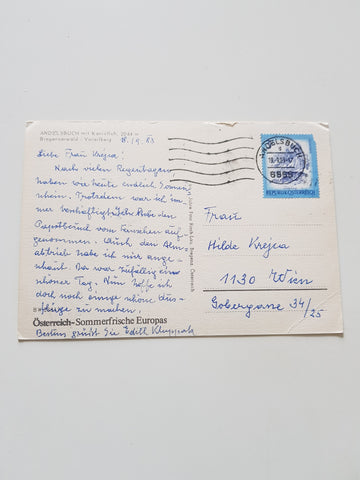 ANDELSBUCH mit Kanisfluh, 2044 m
Bregenzerwald - Vorarlberg
18.19.83
Liebe Frau Krejca!
Nach vielen Regentagen
haben wir heute endlich Sonnen
schein. Trotzdem war ich im
mer
den
Papstbesuch vom Fernsehen auf
genommen. Auch den Alm
abtrieb habe ich mir ange
schaut. Da war zufällig ein
schöner Tag. Nun hoffe ich
doch noch einige schöne Aus
flüge zu machen.
Österreich-Sommerfrische Europas
Bestens grüßt Sie Edith
ANDELSBUCH
6866
REPUBLIK ÖSTERREICH
Frau
Hilde Krejca
1130 Wien
Gobergasse 34/25